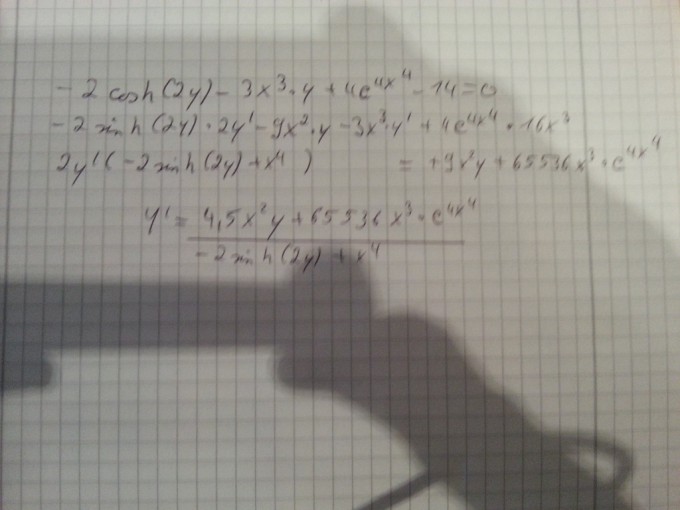 -2 cosh(2y) - 3x³·y + 4e^4x⁴ - 14 = 0
-2 sinh(2y)·2y' - 9x²·y - 3x³·y' + 4e^4x⁴ · 16x³
2y'(-2 sinh(2y) + x⁴ ) = +9x²y + 65536x³·e^4x⁴
y' = 4,5x²y + 65536x³·e^4x⁴
-2 sinh(2y) + x⁴